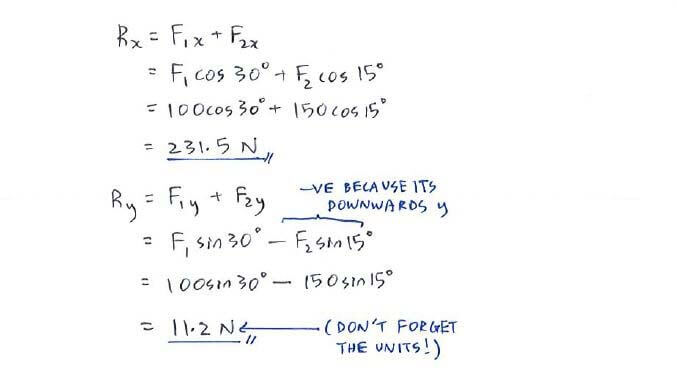 Rx = F₁x + F₂x
= F₁ cos 30° + F₂ cos 15°
= 100cos30° + 150cos15°
= 231.5 N
Ry = F₁y + F₂y
-VE BECAUSE ITS
DOWNWARDS y
= F₁ sin30° - F₂ sin15°
= 100sin30° - 150sin15°
= 11.2 N ← (DON'T FORGET
THE UNITS!)